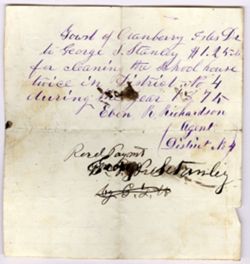 Town of Cranberry Isles Dr
to George S. Stanley $1.25
for cleaning the School house
twice in District No 4
during the year 1875
Eben R Richardson
Agent
District No 4
Recd Paymt
Stanley
by